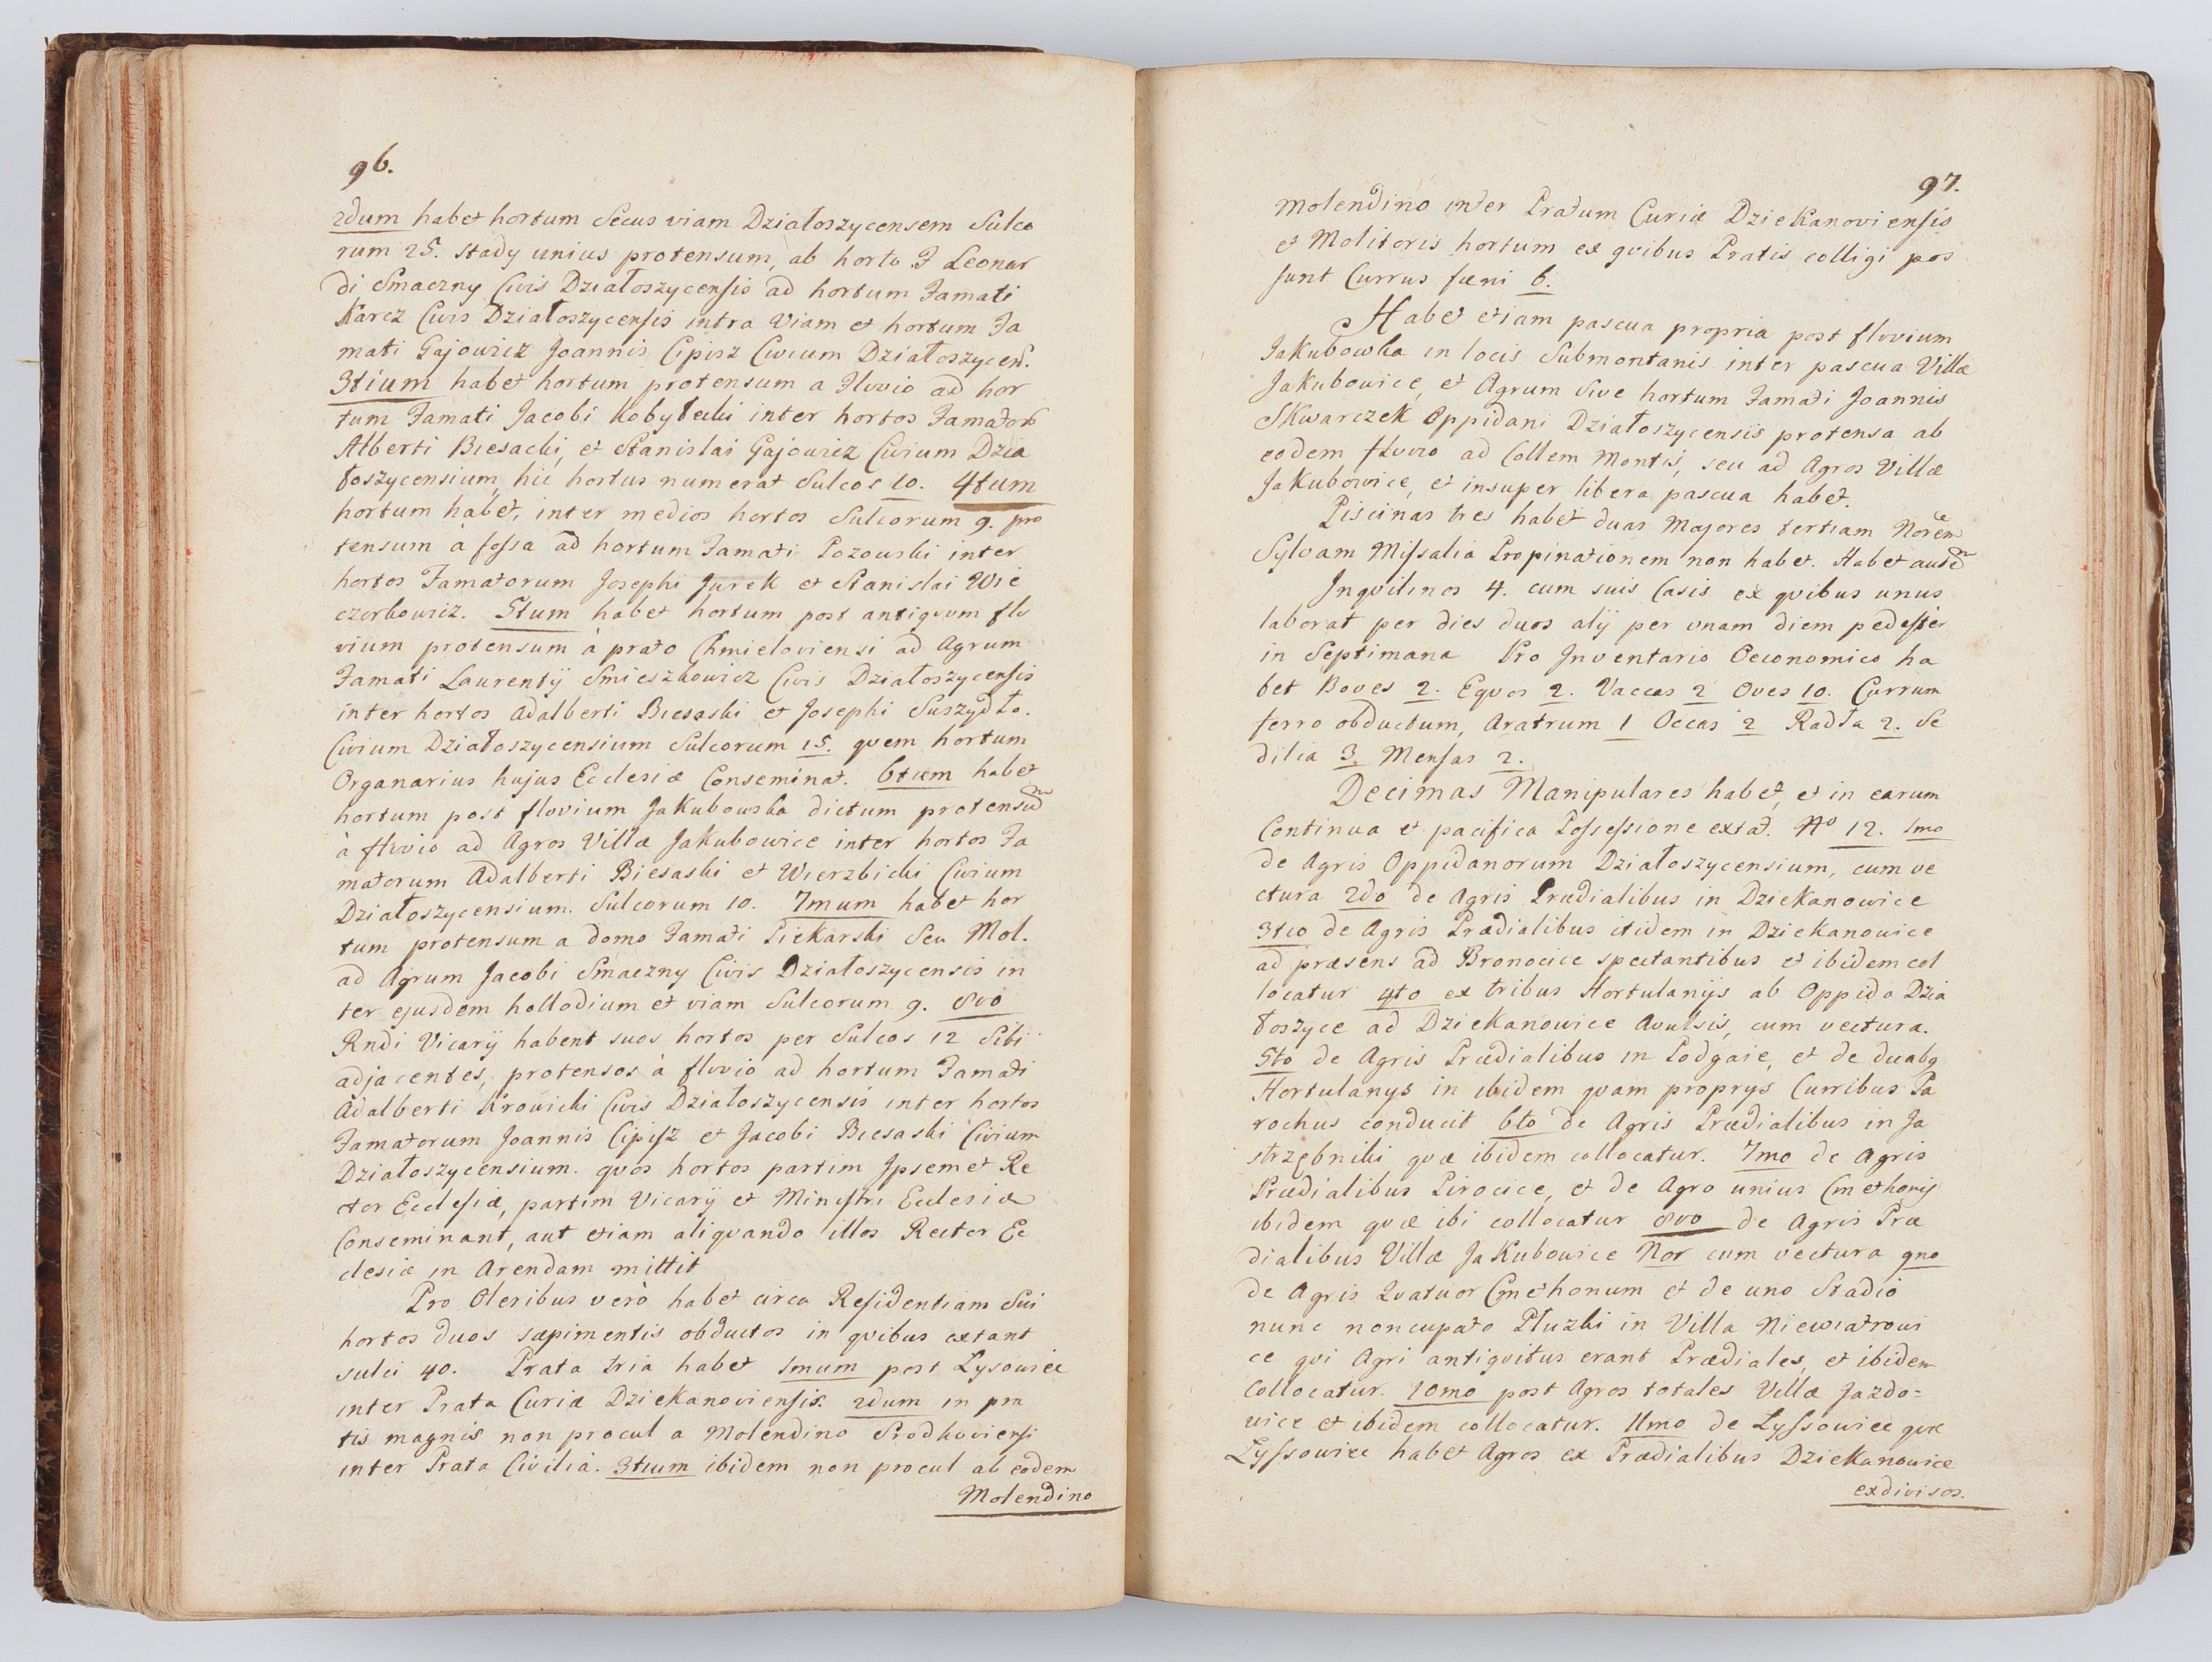 96.
2dum habet hortum Secus viam Działoszycensem Sulco
rum 25. stady unius protensum, ab horto F Leonar
di Smaczny Civis Działoszycensis ad hortum Famati
Karcz Civis Działoszycensis intra Viam et hortum Fa
mati Gajowicz Joannis Cipisz Civium Działoszycen.
3tium habet hortum protensum a Fluvio ad hor
tum Famati Jacobi Kobylecki inter hortos Famator
Alberti Biesacki, et Stanislai Gajowicz Civium Dzia
łoszycensium, hic hortus numerat Sulcos 10. 4tum
hortum habet, inter medios hortos Sulcorum 9. pro
tensum à fossa ad hortum Famati Pozowski inter
hortos Famatorum Josephi Jurek et Stanislai Wie
czorkowicz. 5tum habet hortum post antiquum flu
vium protensum à prato Chmieloviensi ad Agrum
Famati Laurentÿ Smieszkowicz Civis Działoszycensis
inter hortos Adalberti Biesaski et Josephi Suszydło.
Civium Działoszycensium Sulcorum 15. quem hortum
Organarius hujus Ecclesiæ Conseminat. 6tum habet
hortum post fluvium Jakubowska dictum protensum
à fluvio ad Agros Villæ Jakubowice inter hortos Fa
matorum Adalberti Biesaski et Wierzbicki Civium
Działoszycensium. Sulcorum 10. 7mum habet hor
tum protensum a domo Famati Piekarski Seu Mol.
ad Agrum Jacobi Smaczny Civis Działoszycensis in
ter ejusdem hollodium et viam Sulcorum 9. 8vo
Rndi Vicarÿ habent suos hortos per Sulcos 12 Sibi
adjacentes, protensos à fluvio ad hortum Famati
Adalberti Krowicki Civis Działoszycensis inter hortos
Famatorum Joannis Cipisz et Jacobi Biesaski Civium
Działoszycensium. quos hortos partim Ipsemet Re
ctor Ecclesiæ, partim Vicarÿ et Ministri Ecclesiæ
Conseminant, aut etiam aliquando illos Rector Ec
clesiæ in Arendam mittit
Pro Oleribus verò habet circa Residentiam Sui
hortos duos sæpimentis obductos in quibus extant
sulci 40. Prata tria habet 1mum post Lysowice
inter Prata Curiæ Dziekanoviensis. 2dum in pra
tis magnis non procul a Molendino Srodkoviensi
inter Prata Civilia. 3tium ibidem non procul ab eodem
Molendino
97.
Molendino inter Pratum Curiæ Dziekanoviensis
et Molitoris hortum ex quibus Pratis colligi pos
sunt Currus fæni 6.
Habet etiam pascua propria post fluvium
Jakubowka in locis Submontanis inter pascua Villæ
Jakubowice, et Agrum Sive hortum Famati Joannis
Skwarczek Oppidani Działoszycensis protensa ab
eodem fluvio ad Collem Montis, seu ad Agros Villæ
Jakubowice, et insuper libera pascua habet.
Piscinas tres habet duas Majores tertiam Norem
Sylvam Missalia Propinationem non habet. Habet autem
Inquilinos 4. cum suis Casis ex quibus unus
laborat per dies duos alÿ per unam diem pedester
in Septimana Pro Inventario Oeconomico ha
bet Boves 2. Equos 2. Vaccas 2 Oves 10. Currum
ferro obductum, Aratrum 1 Occas 2 Radła 2. Se
dilia 3. Mensas 2.
Decimas Manipulares habet, et in earum
Continua et pacifica Possessione extat. No 12. 1mo
de Agris Oppidanorum Działoszycensium, cum ve
ctura 2do de Agris Prædialibus in Dziekanowice
3tio de Agris Prædialibus itidem in Dziekanowice
ad præsens ad Bronocice spectantibus et ibidem col
locatur 4to ex tribus Hortulanÿs ab Oppido Dzia
łoszyce ad Dziekanowice Avulsis, cum vectura.
5to de Agris Prædialibus in Podgaie, et de duabq
Hortulanys in ibidem quam proprys Curribus Pa
rochus conducit 6to de Agris Prædialibus in Ja
strzębniki quæ ibidem collocatur. 7mo de Agris
Prædialibus Pirocice, et de Agro unius Cmethonis
ibidem quæ ibi collocatur 8vo de Agris Præ
dialibus Villæ Jakubowice Nor cum vectura 9no
de Agris Quatuor Cmethonum et de uno Stadio
nunc noncupato Płuzki in Villa Niewiatrowi
ce qui Agri antiquitus erant Prædiales, et ibidem
Collocatur. 10mo post Agros totales Villæ Jazdo=
wice et ibidem collocatur. 11mo de Lyssowice quæ
Lyssowice habet Agros ex Prædialibus Dziekanowice
exdivisos.